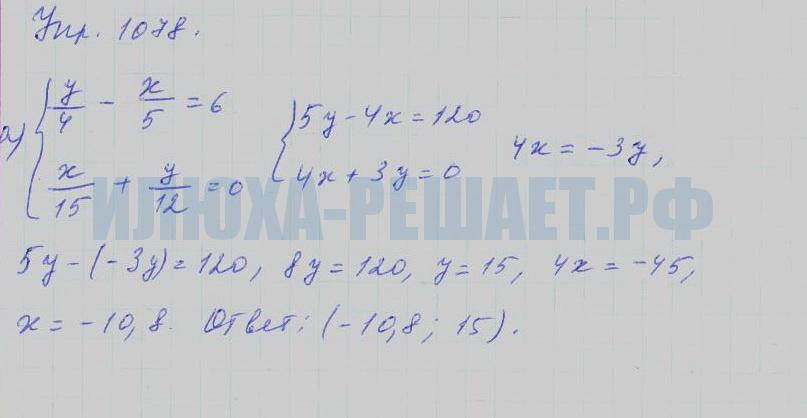 Упр. 1078.
а) { y/4 - x/5 = 6   { 5y - 4x = 120
x/15 + y/12 = 0   4x + 3y = 0   4x = -3y,
ИЛЮХА-РЕШАЕТ.РФ
5y - (-3y) = 120, 8y = 120, y = 15, 4x = -45,
x = -10,8. Ответ: (-10,8; 15).